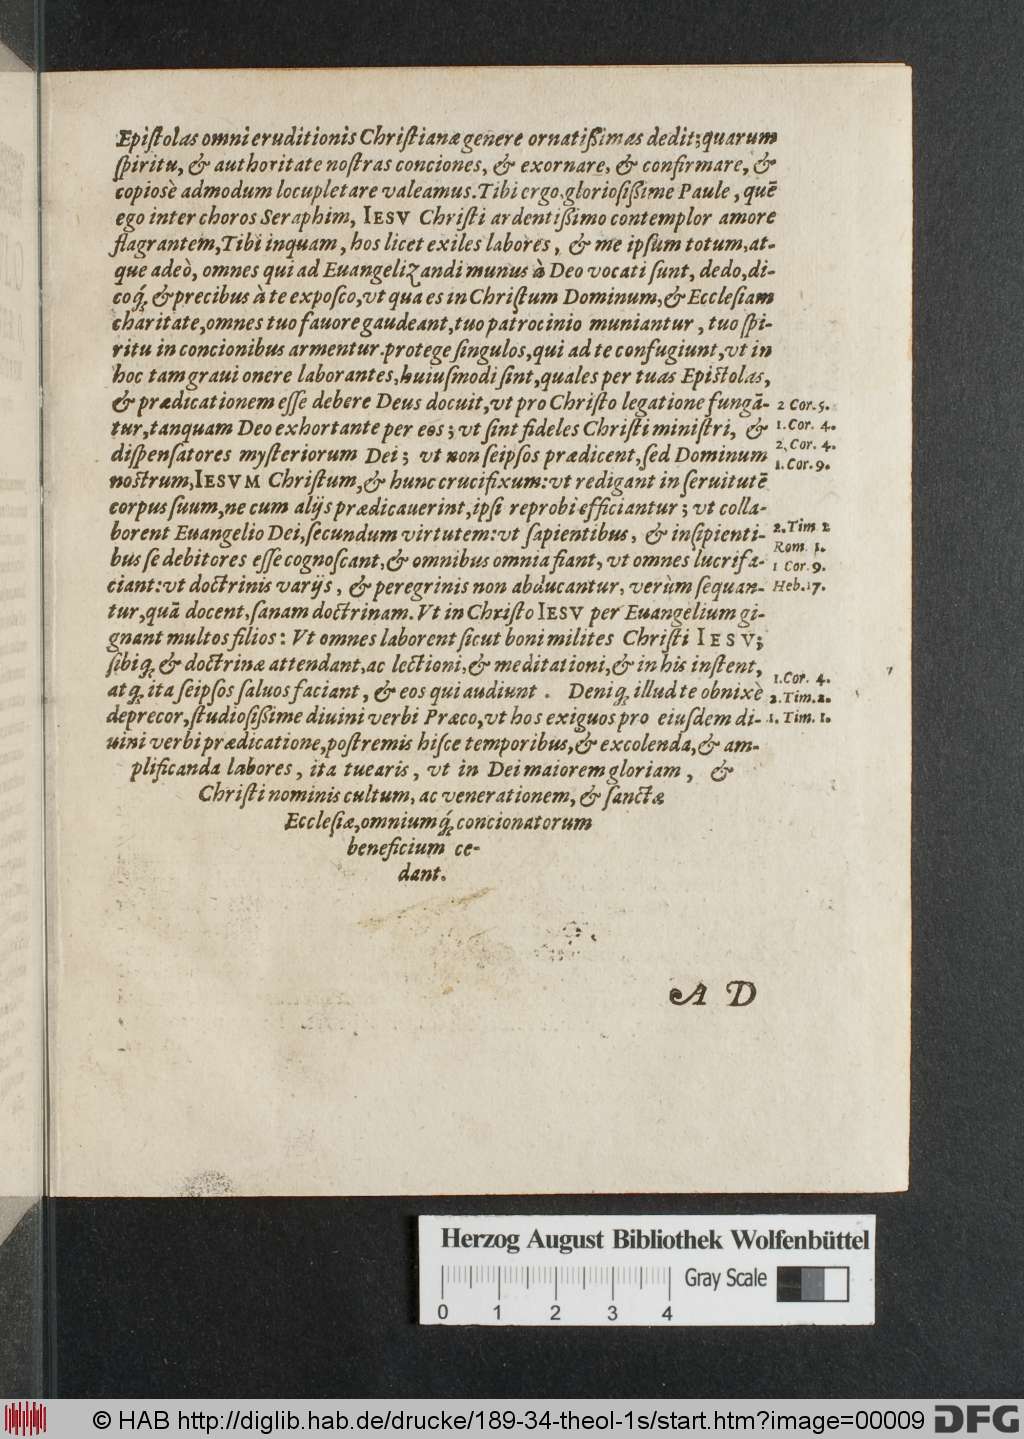 Epiſtolas omni eruditionis Chriſtianæ genere ornatiſſimas dedit; quarum
ſpiritu, & authoritate noſtras conciones, & exornare, & confirmare, &
copiosè admodum locupletare valeamus. Tibi ergo, glorioſiſſime Paule, quē
ego inter choros Seraphim, IESV Chriſti ardentiſſimo contemplor amore
flagrantem, Tibi inquam, hos licet exiles labores, & me ipſum totum, at-
que adeò, omnes qui ad Euangelizandi munus à Deo vocati ſunt, dedo, di-
coq́, & precibus à te expoſco, vt qua es in Chriſtum Dominum, & Eccleſiam
charitate, omnes tuo fauore gaudeant, tuo patrocinio muniantur, tuo ſpi-
ritu in concionibus armentur. protege ſingulos, qui ad te confugiunt, vt in
hoc tam graui onere laborantes, huiuſmodi ſint, quales per tuas Epiſtolas,
& prædicationem eſſe debere Deus docuit, vt pro Chriſto legatione fungā-
2 Cor. 5.
tur, tanquam Deo exhortante per eos; vt ſint fideles Chriſti miniſtri, &
1. Cor. 4.
diſpenſatores myſteriorum Dei; vt non ſeipſos prædicent, ſed Dominum
2. Cor. 4.
1. Cor. 9.
noſtrum, IESVM Chriſtum, & hunc crucifixum: vt redigant in ſeruitutē
corpus ſuum, ne cum alijs prædicauerint, ipſi reprobi efficiantur; vt colla-
borent Euangelio Dei, ſecundum virtutem: vt ſapientibus, & inſipienti-
2. Tim 2
Rom. 1.
bus ſe debitores eſſe cognoſcant, & omnibus omnia fiant, vt omnes lucrifa-
1 Cor. 9.
ciant: vt doctrinis varijs, & peregrinis non abducantur, verùm ſequan-
Heb. 17.
tur, quā docent, ſanam doctrinam. Vt in Chriſto IESV per Euangelium gi-
gnant multos filios: Vt omnes laborent ſicut boni milites Chriſti IESV;
ſibiq́, & doctrinæ attendant, ac lectioni, & meditationi, & in his inſtent,
1. Cor. 4.
atq́, ita ſeipſos ſaluos faciant, & eos qui audiunt. Deniq́, illud te obnixè
2. Tim. 2.
deprecor, ſtudioſiſſime diuini verbi Præco, vt hos exiguos pro eiuſdem di-
1. Tim. 1.
uini verbi prædicatione, poſtremis hiſce temporibus, & excolenda, & am-
plificanda labores, ita tuearis, vt in Dei maiorem gloriam, &
Chriſti nominis cultum, ac venerationem, & ſanctæ
Eccleſiæ, omniumq́, concionatorum
beneficium ce-
dant.
A D
Herzog August Bibliothek Wolfenbüttel
Gray Scale
0 1 2 3 4
© HAB http://diglib.hab.de/drucke/189-34-theol-1s/start.htm?image=00009
DFG